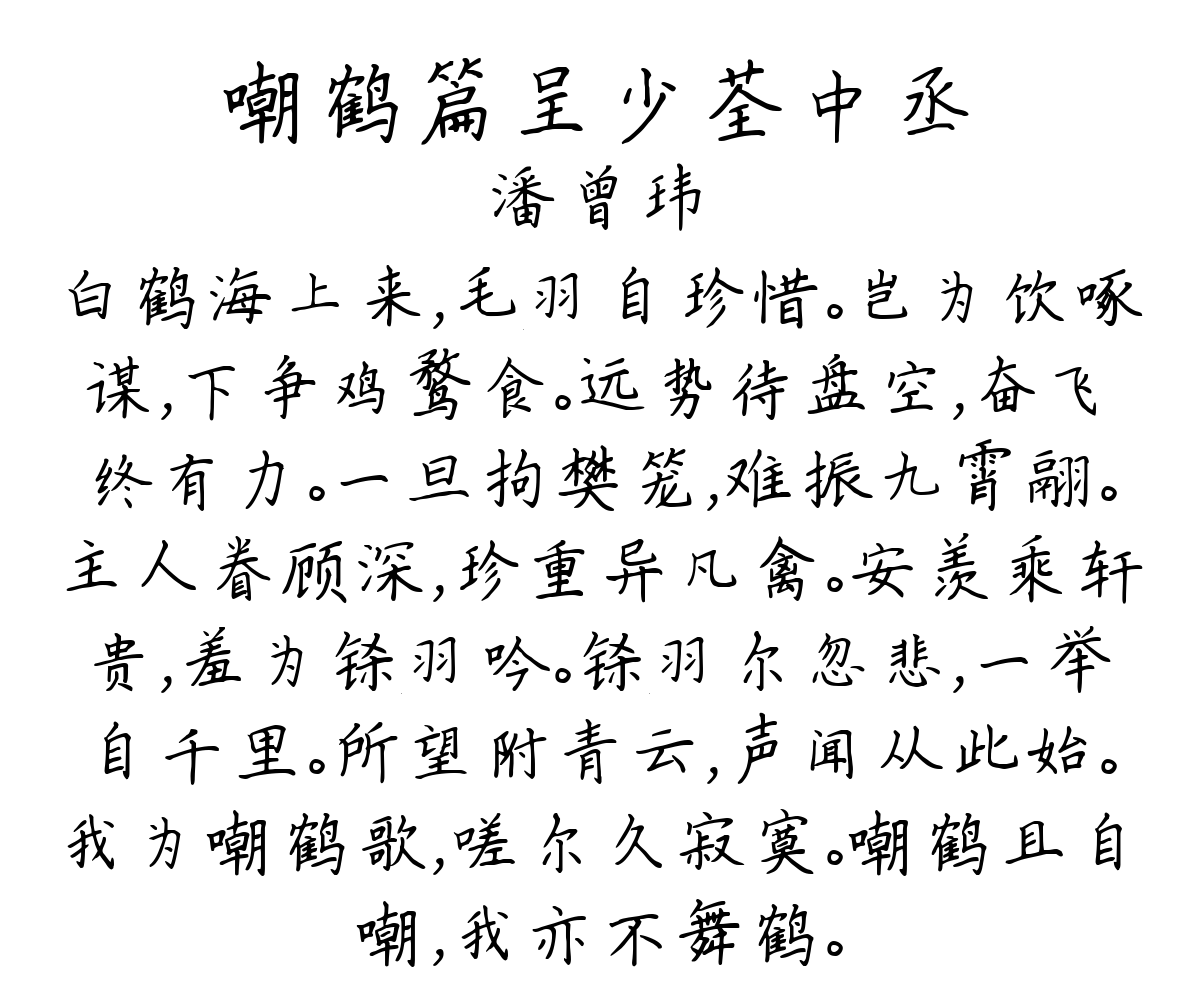 嘲鹤篇呈少荃中丞
潘曾玮
白鹤海上来,毛羽自珍惜。岂为饮啄
谋,下争鸡鹜食。远势待盘空,奋飞
终有力。一旦拘樊笼,难振九霄翮。
主人眷顾深,珍重异凡禽。安羡乘轩
贵,羞为铩羽吟。铩羽尔忽悲,一举
自千里。所望附青云,声闻从此始。
我为嘲鹤歌,嗟尔久寂寞。嘲鹤且自
嘲,我亦不舞鹤。